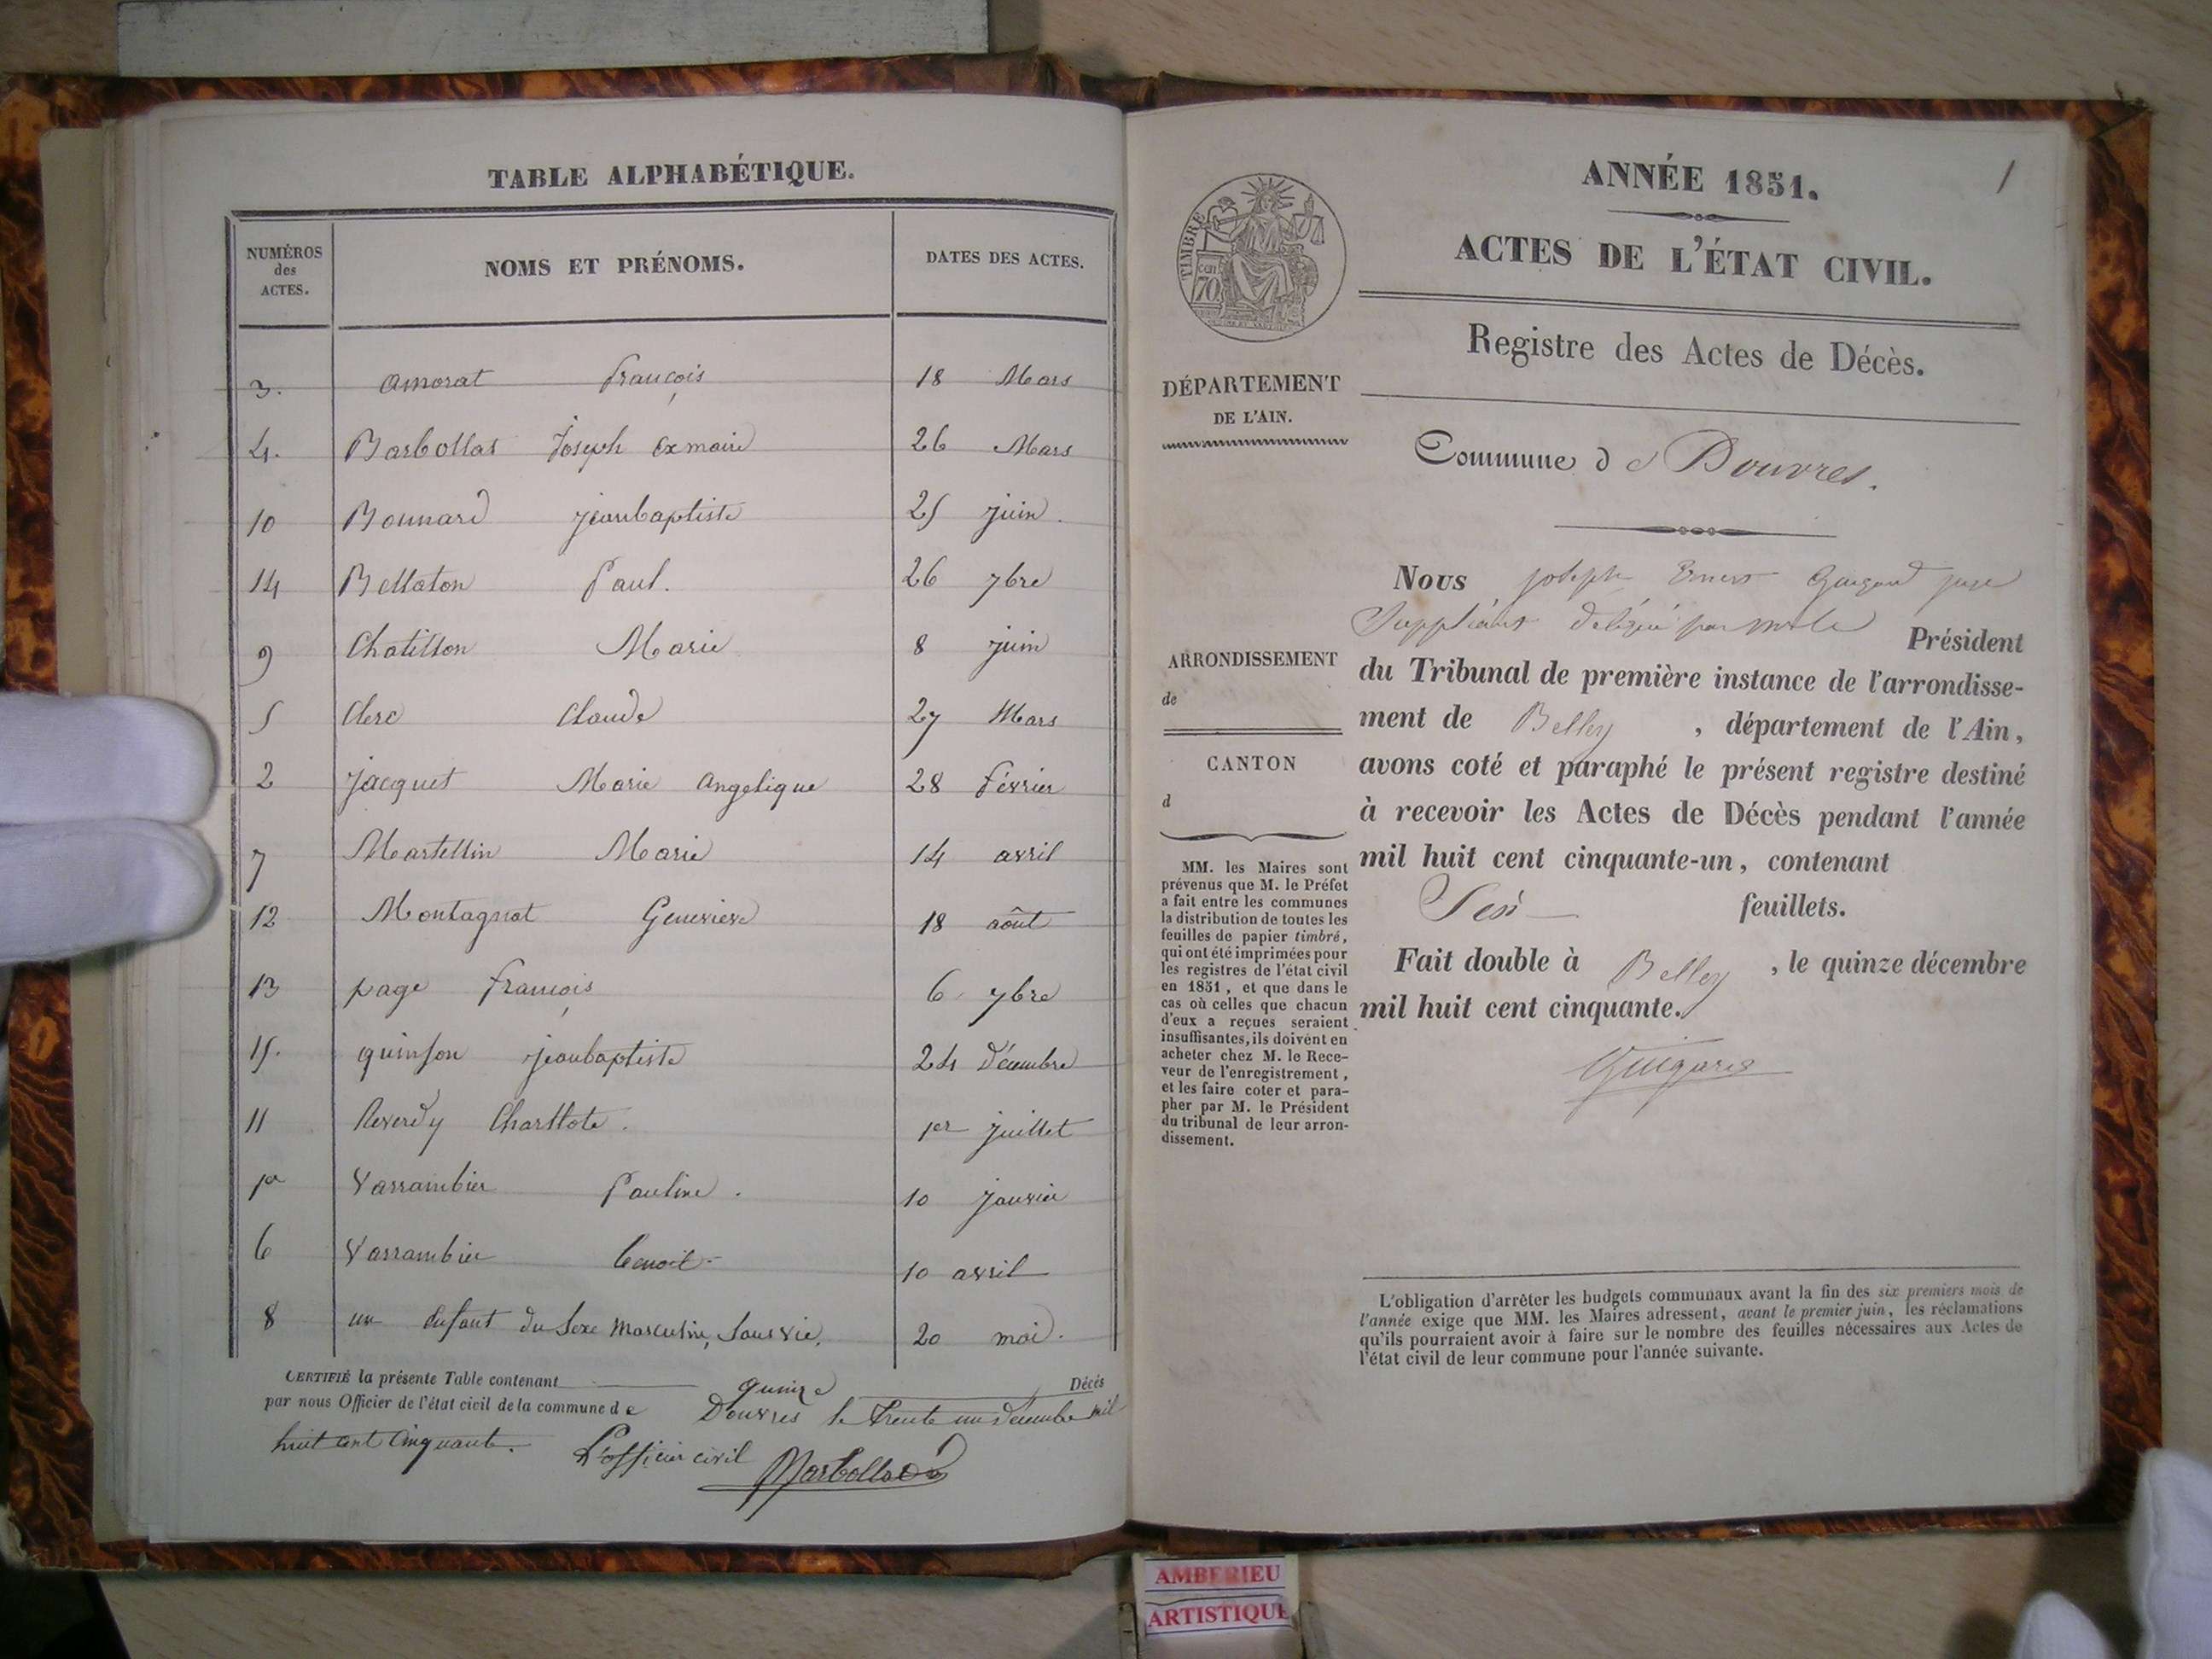 TABLE ALPHABÉTIQUE.
NUMÉROS des ACTES. NOMS ET PRÉNOMS. DATES DES ACTES.
3. amorat françois 18 Mars
4. Barbollat Joseph exmaire 26 Mars
10 Bonnard jeanbaptiste 25 juin.
14 Bellaton Paul. 26 7bre
9 Chatillon Marie 8 juin
5 Clerc Claude 27 Mars
2 jacquet Marie angelique 28 février
7 Martellin Marie 14 avril
12 Montagnat Genevieve 18 août
13 page françois 6 7bre
15. quinson jeanbaptiste 24 décembre
11 Reverdy Charllote. 1er juillet
1er Varrambier Pauline. 10 janvier
6 Varrambier benoit 10 avril
8 un enfant du sexe masculin, sans vie. 20 mai.
CERTIFIÉ la présente Table contenant quinze Décés
par nous Officier de l'état civil de la commune de Douvres le trente un décembre mil
huit cent cinquante. L'officier civil
Barbollat
1
ANNÉE 1851.
ACTES DE L'ÉTAT CIVIL.
Registre des Actes de Décès.
TIMBRE
70
DÉPARTEMENT
DE L'AIN.
Commune de Douvres.
Nous joseph juge
Suppléant délégué par Président
du Tribunal de première instance de l'arrondisse-
ment de Belley, département de l'Ain,
avons coté et paraphé le présent registre destiné
à recevoir les Actes de Décès pendant l'année
mil huit cent cinquante-un, contenant
feuillets.
Fait double à Belley, le quinze décembre
mil huit cent cinquante.
ARRONDISSEMENT
de
CANTON
d
MM. les Maires sont
prévenus que M. le Préfet
a fait entre les communes
la distribution de toutes les
feuilles de papier timbré,
qui ont été imprimées pour
les registres de l'état civil
en 1851, et que dans le
cas où celles que chacun
d'eux a reçues seraient
insuffisantes, ils doivent en
acheter chez M. le Rece-
veur de l'enregistrement,
et les faire coter et para-
pher par M. le Président
du tribunal de leur arron-
dissement.
L'obligation d'arrêter les budgets communaux avant la fin des six premiers mois de
l'année exige que MM. les Maires adressent, avant le premier juin, les réclamations
qu'ils pourraient avoir à faire sur le nombre des feuilles nécessaires aux Actes de
l'état civil de leur commune pour l'année suivante.
AMBERIEU
ARTISTIQUE